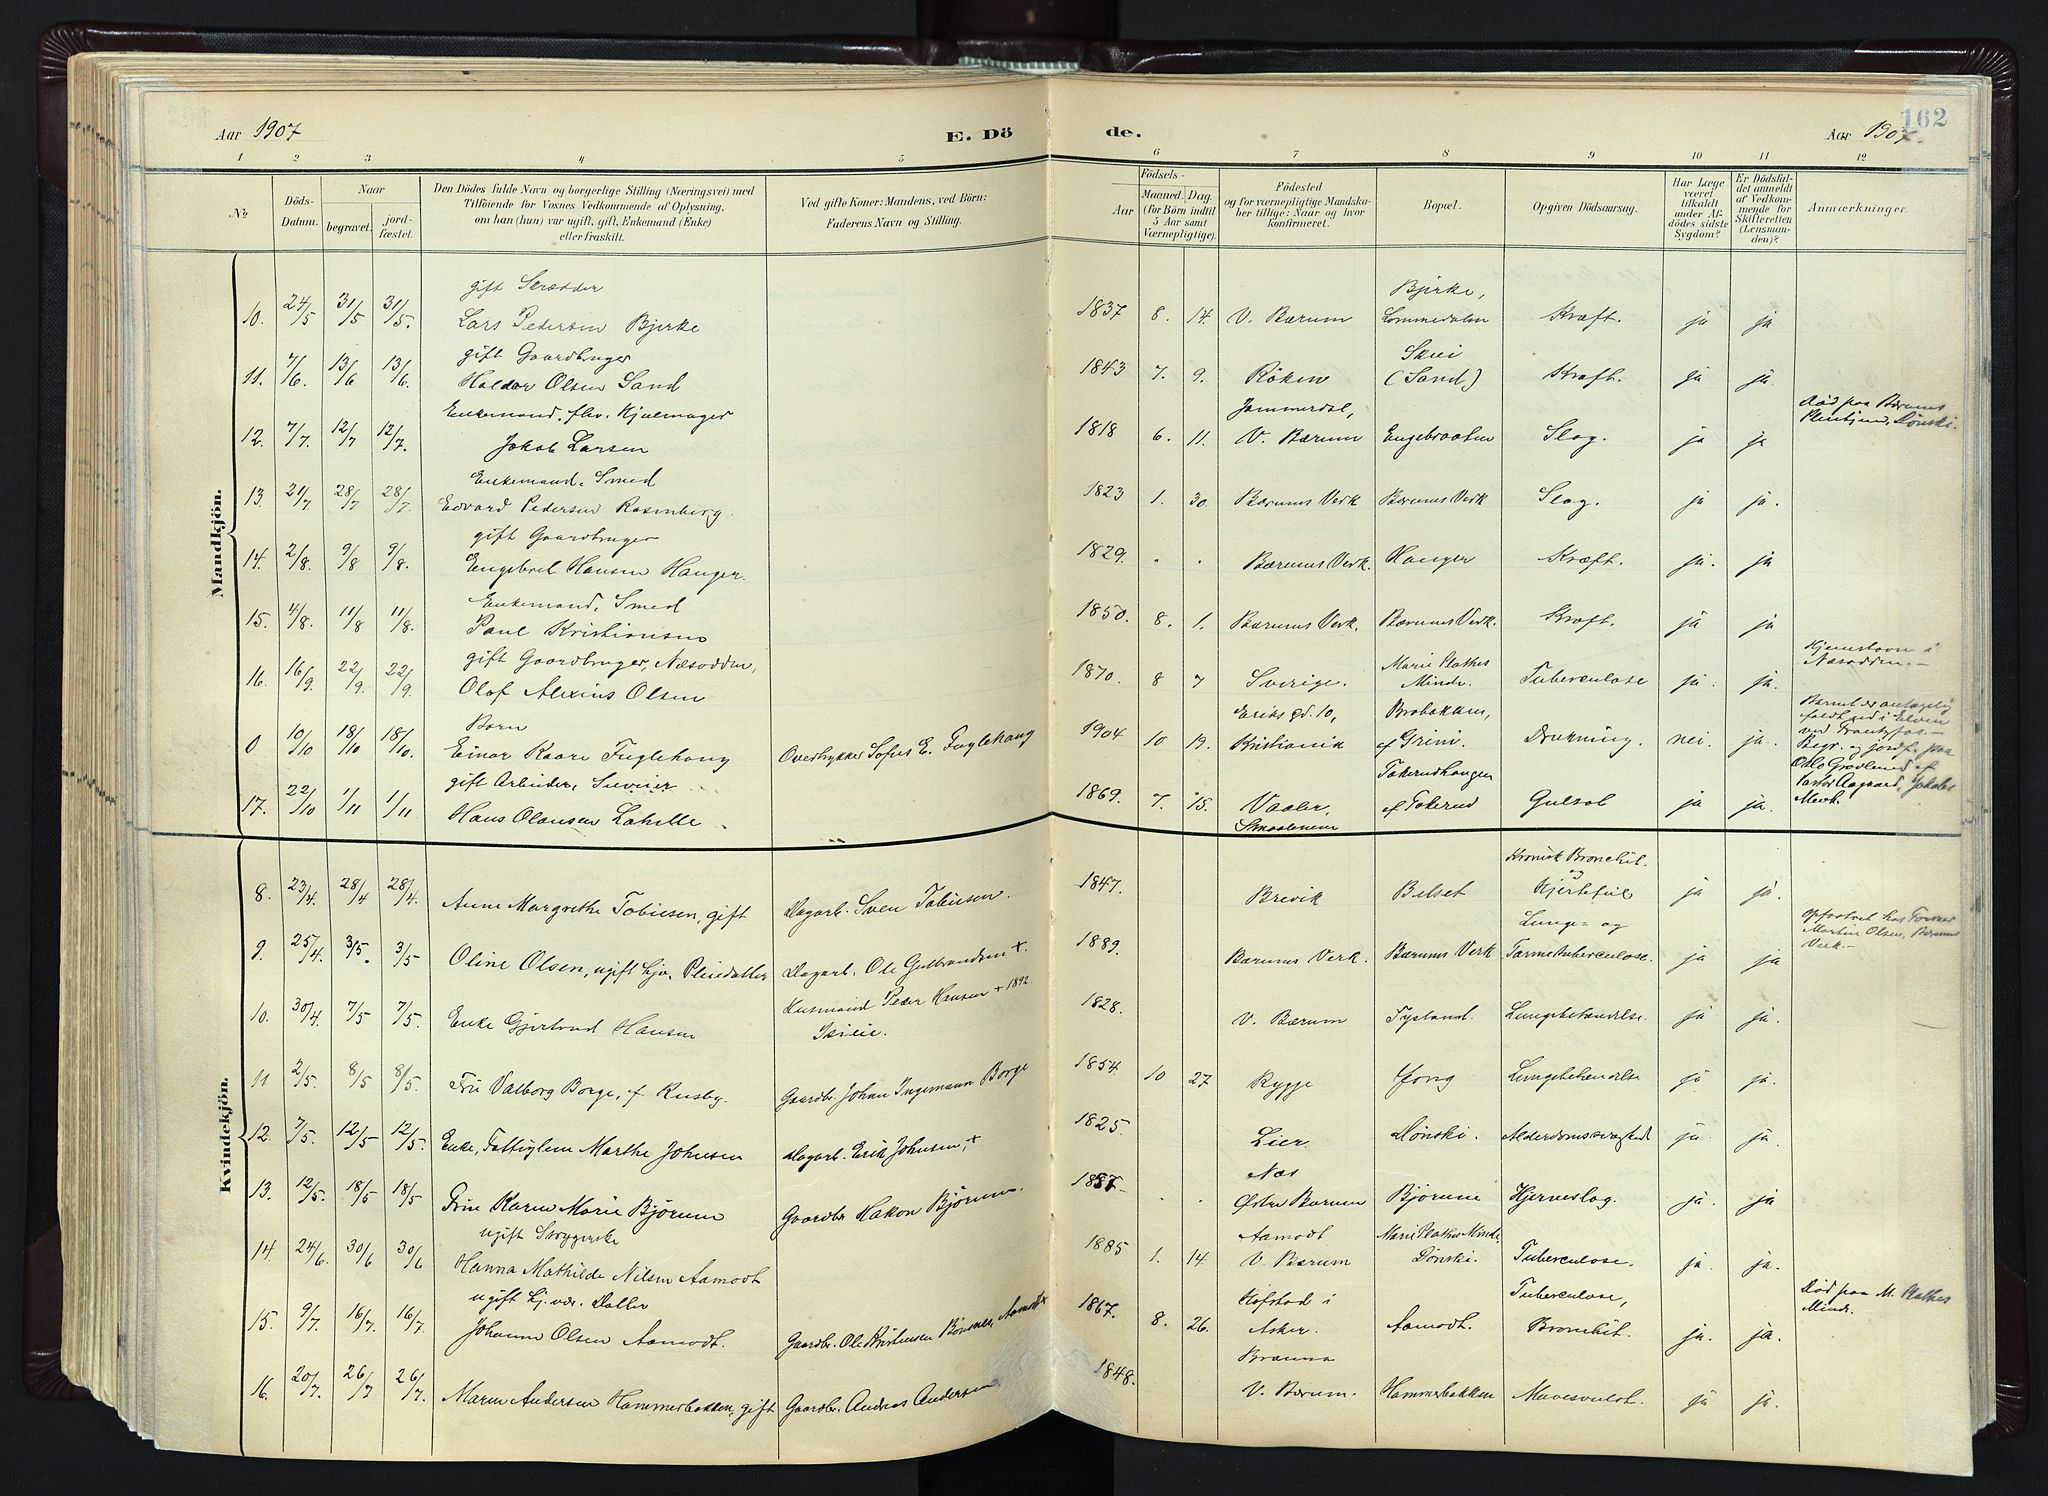 162
Aar 1907
E. Dö
de.
Aar 1907.
1 2 3 4 5 6 7 8 9 10 11 12
No
Döds-
Datum.
Naar
begravet.
jord-
fæstet.
Den Dödes fulde Navn og borgerlige Stilling (Næringsvei) med
Tilföiende for Voxnes Vedkommende af Oplysning,
om han (hun) var ugift, gift, Enkemand (Enke)
eller fraskilt.
Ved gifte Koner: Mandens, ved Börn:
Faderens Navn og Stilling.
Födsels-
Aar
Maaned. Dag.
(for Börn indtil
5 Aar samt
Værnepligtige).
Födested
og for værnepligtige Mandska-
ber tillige: Naar og hvor
konfirmeret.
Bopæl.
Opgiven Dödsaarsag.
Har Læge
været
tilkaldt
under Af-
dödes sidste
Sygdom?
Er Dödsfal-
det anmeldt
af Vedkom-
mende for
Skifteretten
(Lensman-
den)?
Anmærkninger.
Mandkjön.
gift Skrædder Bjerke,
10. 24/5 31/5 31/5. Lars Pedersen Bjerke 1837 8. 14. V. Bærum Lommedalen Kræft. ja ja
gift Gaardbruger Skui
11. 7/6. 13/6 13/6. Haldor Olsen Sand 1843 7. 9. Röken (Sand) Kræft. ja ja.
Enkemand, flv. Hjulmager Jammerdal, Död paa Bærums
12. 7/7. 12/7 12/7. Jakob Larsen 1818 6. 11. V. Bærum Engebraaten Slag. ja ja Pleiehjem, Dönski.
Enkemand, Smed
13. 21/7 28/7 28/7 Edvard Pedersen Rosenberg. 1823 1. 30. Bærums Verk Bærums Verk Slag. ja ja.
gift Gaardbruger
14. 2/8. 9/8 9/8. Engebret Hansen Hauger. 1829. " " Bærums Verk. Hauger Kræft. ja. ja
Enkemand, Smed
15. 4/8. 11/8 11/8. Paul Kristiansen 1850. 8. 1. Bærums Verk. Bærums Verk. Kræft. ja ja
gift Gaardbruger, Næsodden, Marie Plathes Hjemstavn i
16. 16/9 22/9. 22/9. Olaf Alexius Olsen 1870. 8 7 Sverige. Minde. Tuberculose ja. ja. Næsodden.
Barn Eriks gd. 10, Brobakken, Barnet er antagelig
0 10/10 18/10 18/10. Einar Kaare Fuglehaug Overtrykker Sofus E. Fuglehaug 1904 10 19. Kristiania af Grini. Drukning. nei. ja. faldt ud i Elven
ved Grantyfos.
Begr. og jordf. paa
Oslo Gravlund af
Pastor Aagaard, Jakobs
Menk.
gift Arbeider, Takerudhaugen
17. 22/10 1/11 1/11 Hans Olausen Lakille 1869. 7. 15. Vaaler, af Takerud Gulsot ja ja.
Smaalenene
Kvindekjön.
Kronisk Bronchit.
8. 23/4. 28/4 28/4. Anne Margrethe Tobiesen, gift Dagarb. Sven Tobiesen. 1847. Brevik Belset og Hjertefeil ja ja.
Lunge- og opfostret hos Former
9. 25/4. 3/5. 3/5 Oline Olsen, ugift hjv. Pleiedatter Dagarb. Ole Gulbrandsen +. 1889. Bærums Verk. Bærums Verk Tarmetuberculose. ja ja Martin Olsen, Bærums
Verk.
10. 30/4. 7/5 7/5. Enke Gjertrud Hansen Husmand Peder Hansen + 1892 1828. V. Bærum Tysland. Lungebetændelse. ja ja.
11 2/5. 8/5 8/5. Fru Valborg Borge, f. Rusby. Gaardbr. Johan Ingemann Borge 1854. 10 27 Rygge Jong Lungebetændelse ja ja.
12. 7/5. 12/5 12/5. Enke, Fattiglem Marthe Johnsen Dagarb. Erik Johnsen, + 1825. Lier. Dönski. Alderdomssvaghed ja. ja.
Næs
13. 12/5. 18/5 18/5 Frue Karen Marie Bjørum Gaardbr Hakon Bjørum. " " Østre Bærum Bjørum Hjerneslag. ja. ja
ugift Strygerske Aamodt Marie Plathes Minde,
14. 24/6. 30/6 30/6 Hanna Mathilde Nilsen Aamodt 1885 1. 14 V. Bærum Dönski. Tuberculose. ja. ja.
ugift hj. vær. Datter Hofstad i Tuberculose, Död paa M. Plathes
15. 9/7. 16/7. 16/7. Johanne Olsen Aamodt. Gaardbr. Ole Kristiansen Aamodt + 1867. 8. 26. Asker. Aamodt. Bronchit. ja. ja. Minde.
16. 20/7. 26/7 26/7. Maren Andersen Hammerbakken, gift Gaardbr. Andreas Andersen 1848. V. Bærum. Hammerbakken Mavesvulst. ja ja.